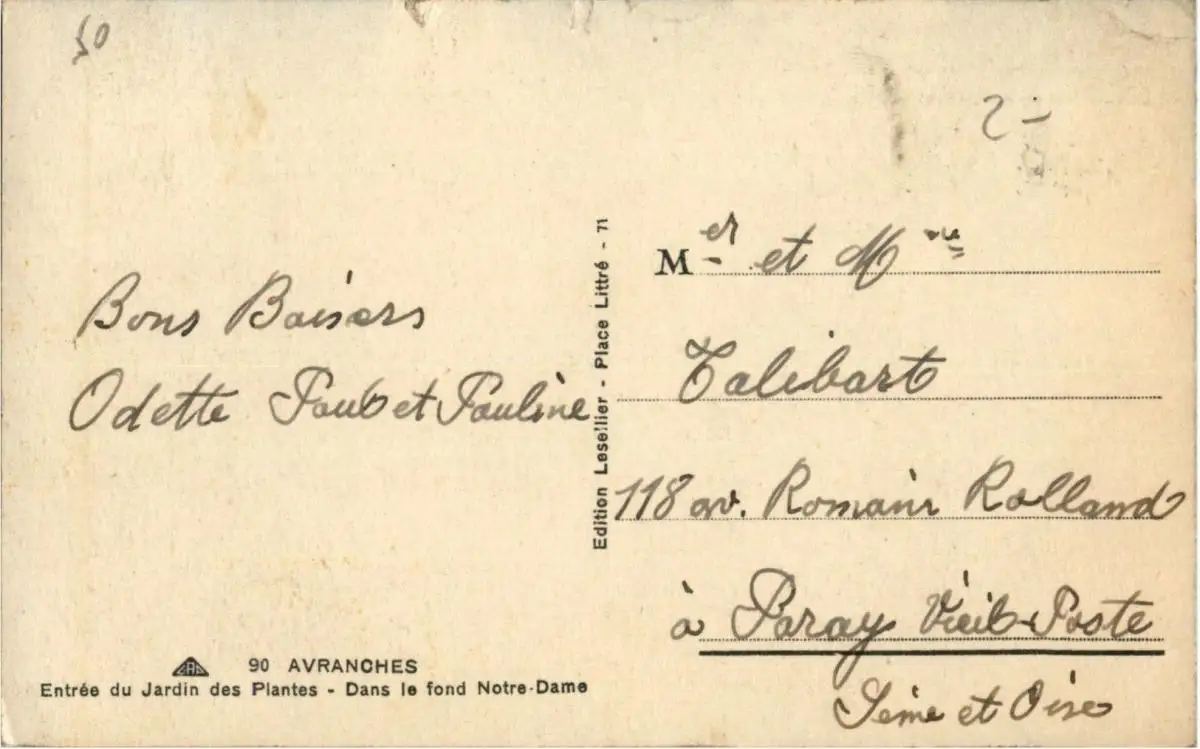 50
2 -
Bons Baisers
Odette Paul et Pauline
Edition Lesellier - Place Littré - 71
Mer et Mme
Talibart
118 av. Romain Rolland
à Paray Vieil-Poste
Seine et Oise
CAP
90 AVRANCHES
Entrée du Jardin des Plantes - Dans le fond Notre-Dame